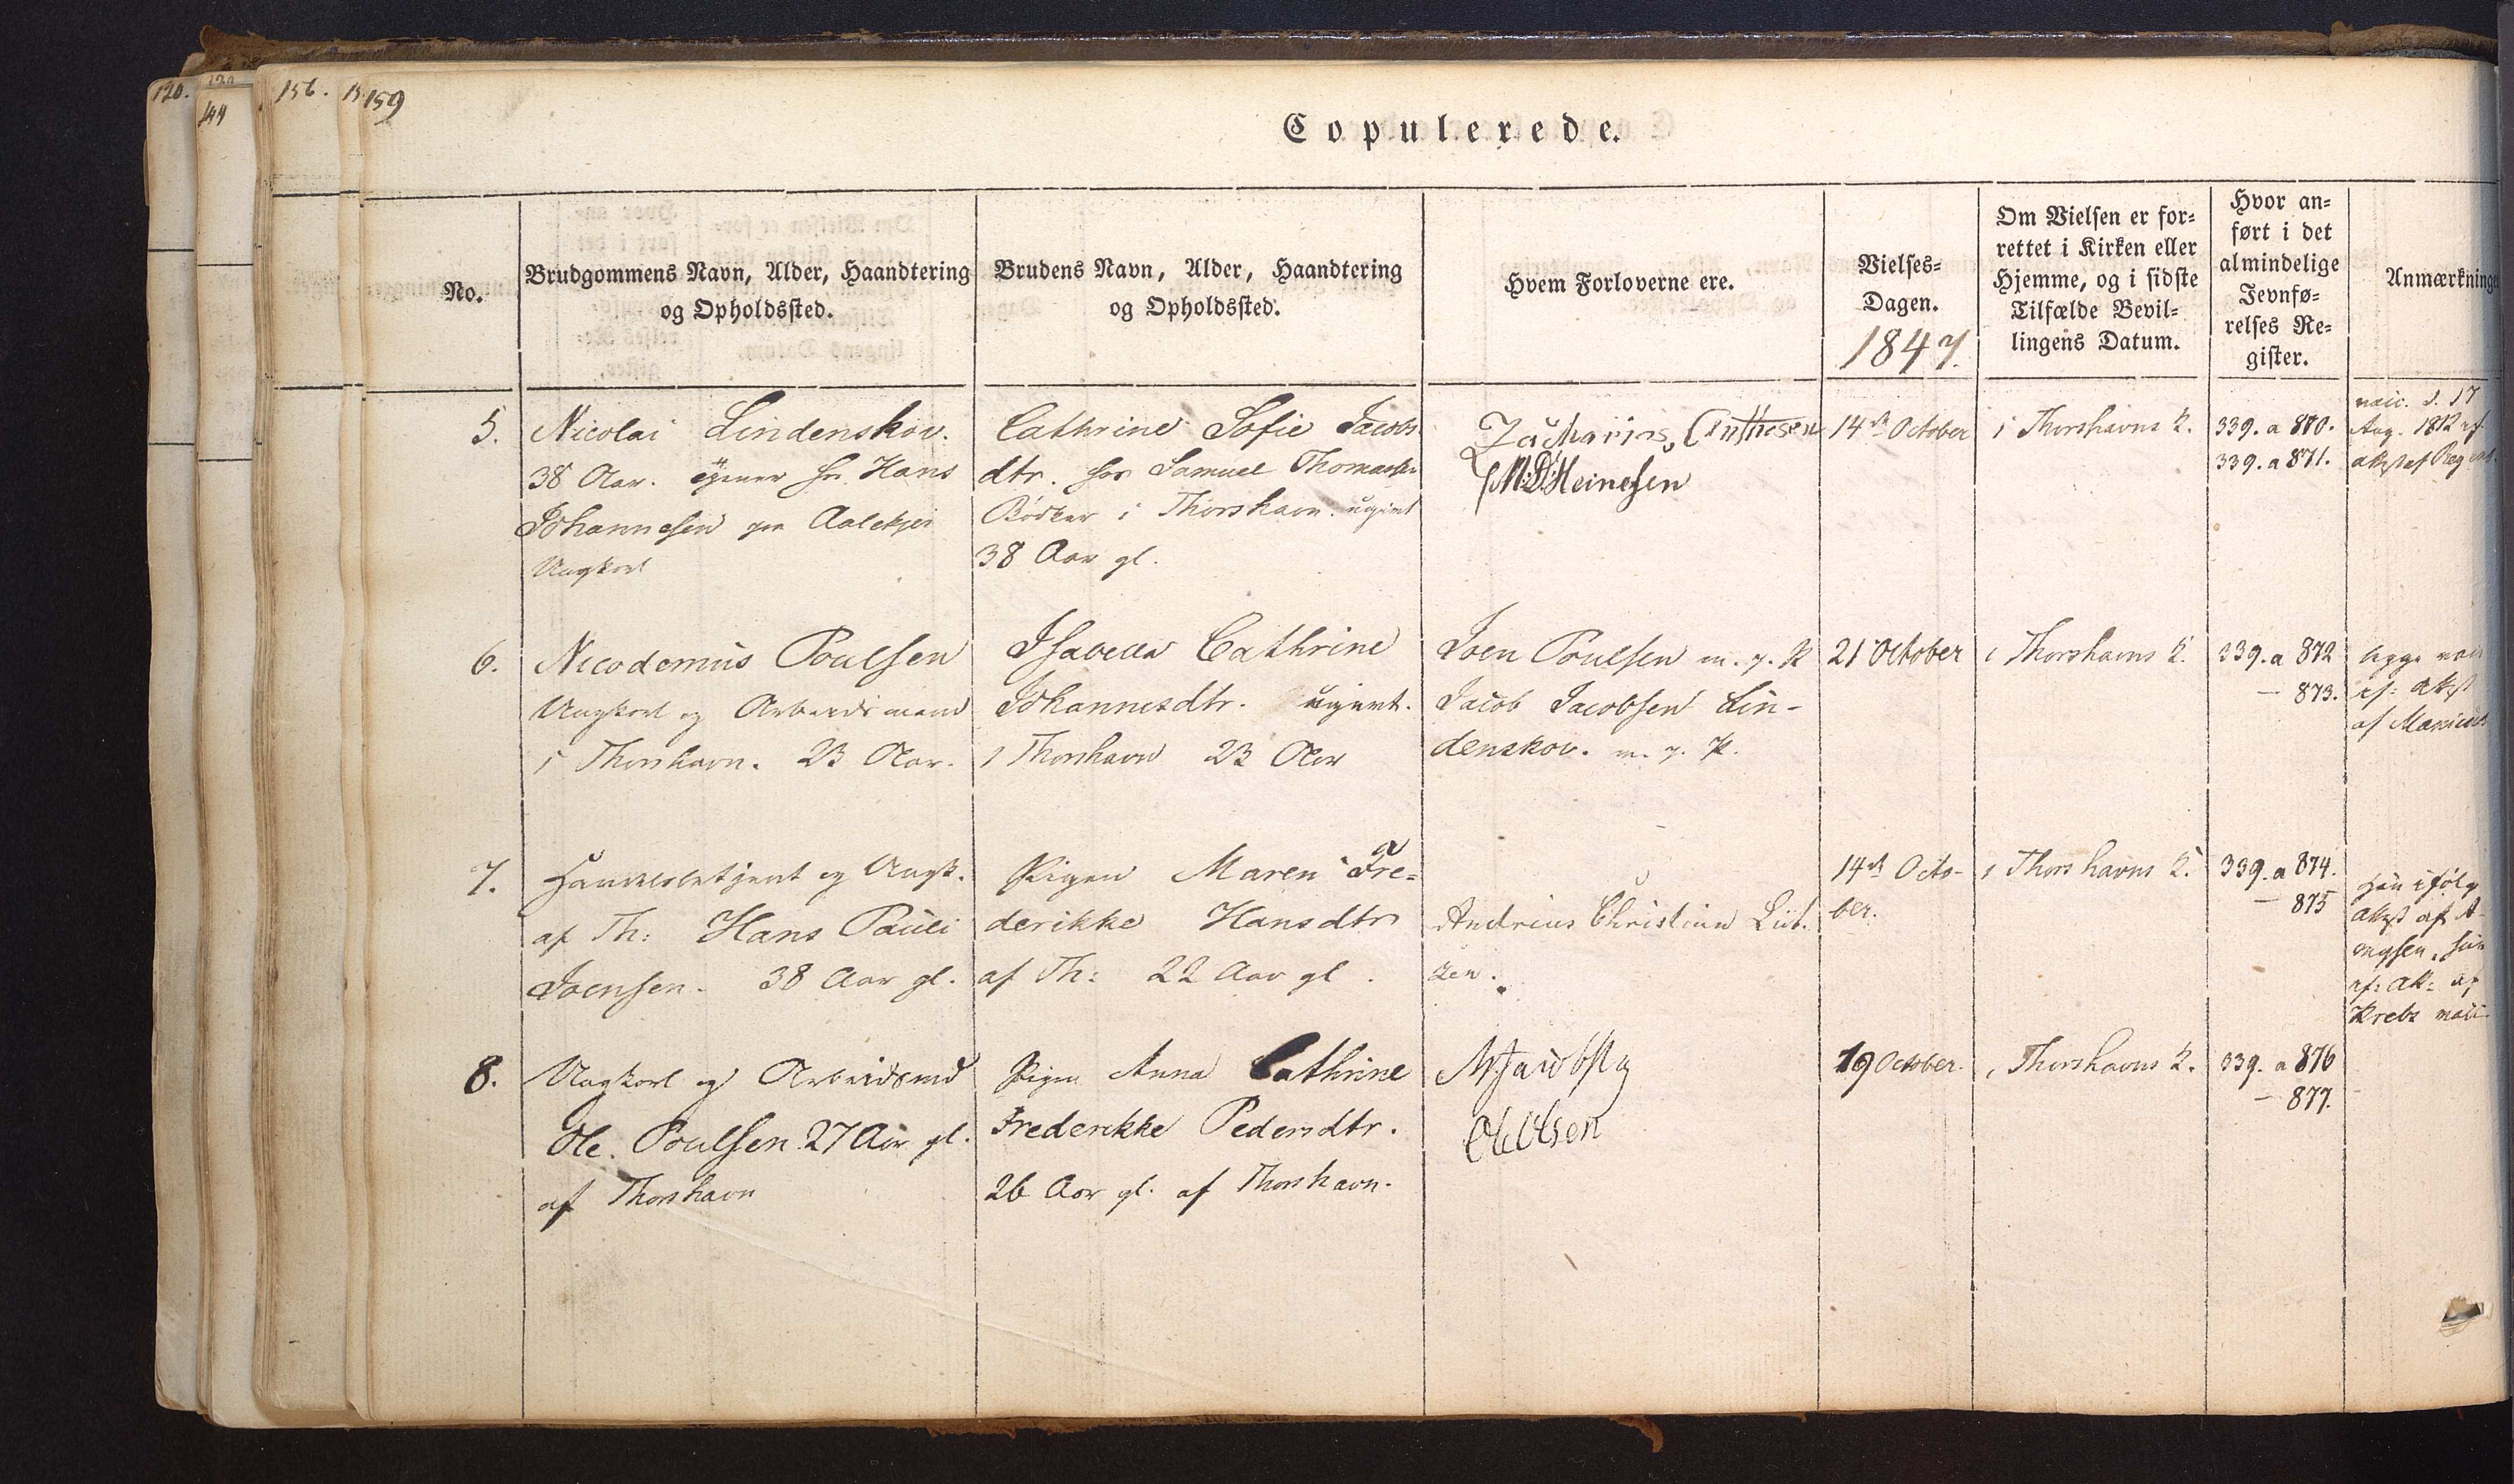 120.
120
144
156.
15
159
Copulerede.
No.
Brudgommens Navn, Alder, Haandtering
og Opholdssted.
Brudens Navn, Alder, Haandtering
og Opholdssted.
Hvem Forloverne ere.
Vielses=
Dagen.
1847.
Om Vielsen er for=
rettet i Kirken eller
Hjemme, og i sidste
Tilfælde Bevil=
lingens Datum.
Hvor an=
ført i det
almindelige
Jevnfø=
relses Re=
gister.
Anmærkninge
5.
Nicolai Lindenskov.
38 Aar. tjener hos Hans
Johannesen paa
Ungkarl
Cathrine Sofie Jacobs
dtr. hos Samuel Thomasen
Bødker i Thorshavn. ugivt
38 Aar gl.
Zacharias,
M:D:Heinesen
14de October
i Thorshavns K.
339. a 870.
339. a 871.
vacc. d. 17
Aug. 1812 ef.
attest af
6.
Nicodemus Poulsen
Ungkarl og Arbeidsmand
i Thorshavn. 23 Aar.
Isabella Cathrine
Johannesdtr. ugivt.
i Thorshavn 23 Aar
Joen Poulsen m. p.
Jacob Jacobsen Lin-
denskov. m. p.
21 October
i Thorshavns K.
339. a 872
— 873.
begge
ef: att
af
7.
Handelsbetjent og Ungk.
af Th: Hans Pauli
Joensen. 38 Aar gl.
Pigen Maren Fre=
derikke Hansdtr
af Th: 22 Aar gl.
Andreas Christian Lüt.
zen.
14de Octo-
ber.
i Thorshavns K.
339. a 874.
— 875
Han ifølg
attest af A-
hun
ef: att: af
Krebs
8.
Ungkarl og Arbeidsmd
Ole. Poulsen. 27 Aar gl.
af Thorshavn
Pigen Anna Cathrine
Frederikke Pedersdtr.
26 Aar gl. af Thorshavn.
19 October.
i Thorshavns K.
339. a 876
— 877.